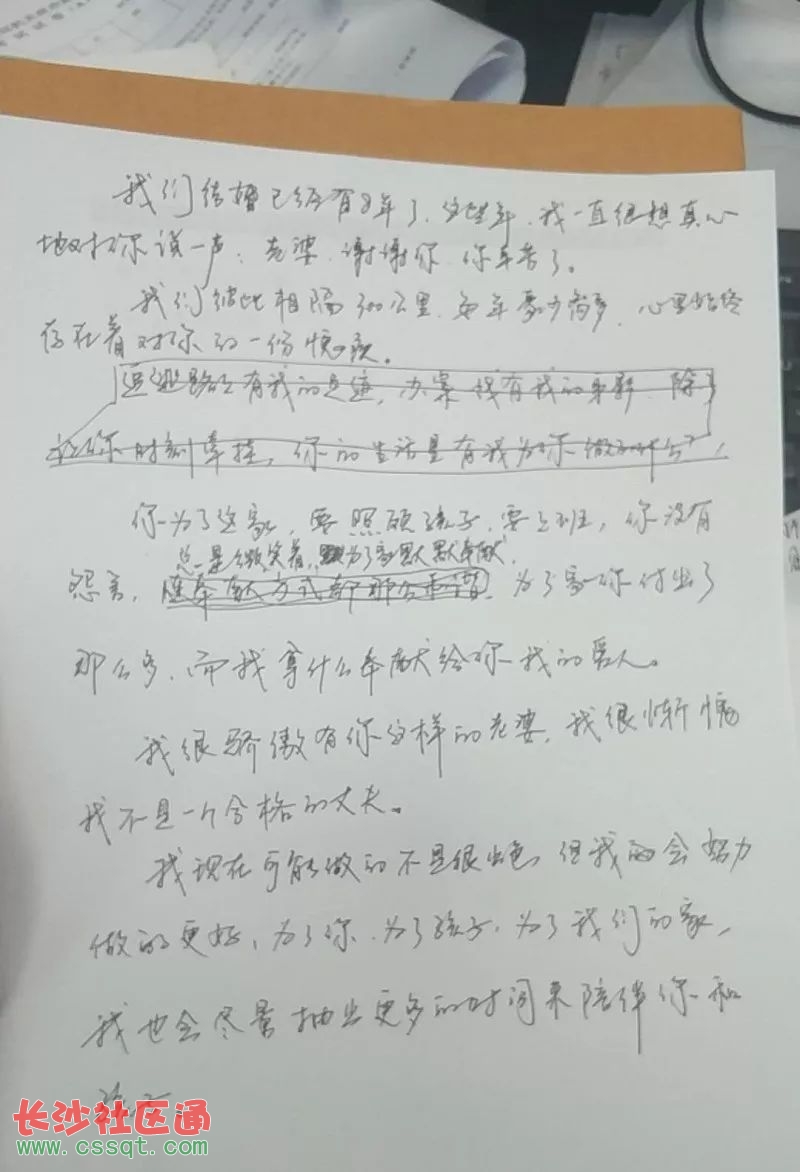 我们结婚已经有8年了，这些年，我一直很想真心
地对你说一声：老婆，谢谢你，你辛苦了。
我们彼此相隔300公里，每年聚少离多，心里始终
存在着对你的一份愧疚。
追逃路上有我的足迹，办案 我有我的身影，除了
让你时刻牵挂，你的生活里有我为你做的什么？
你为了这家，要照顾孩子，要上班，你没有
总是微笑着，为了家默默奉献，
怨言，为了家你付出了
那么多，而我拿什么奉献给你我的爱人。
我很骄傲有你这样的老婆，我很惭愧
我不是一个合格的丈夫。
我现在可能做的不是很出色，但我会努力
做的更好，为了你，为了孩子，为了我们的家，
我也会尽量抽出更多的时间来陪伴你和
孩子。
长沙社区通
www.cssqt.com